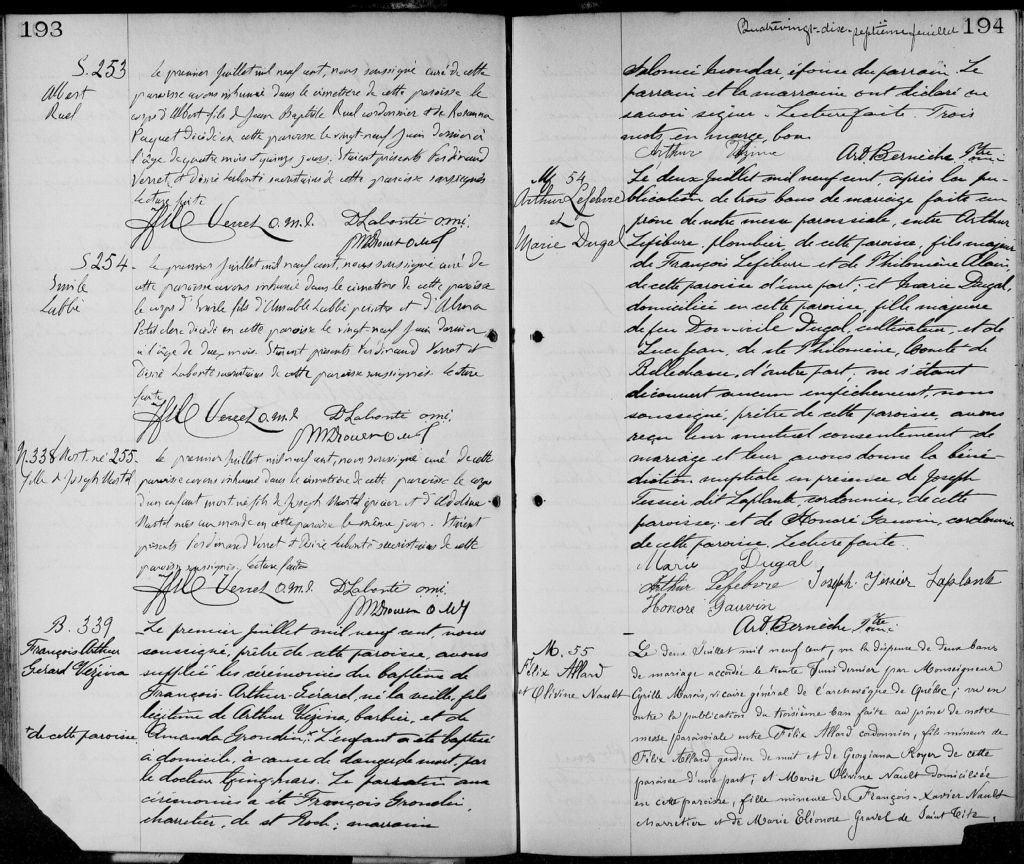 193
S. 253
Albert
Ruel
Le premier Juillet mil neuf cent, nous soussigné curé de cette
paroisse avons inhumé dans le cimetière de cette paroisse le
corps d'Albert fils de Jean Baptiste Ruel cordonnier et de Rosanna
Paquet décédé en cette paroisse le vingt neuf Juin dernier à
l'âge de quatre mois et quinze jours. Etaient présents Ferdinand
Verret et Désiré Labonté sacristains de cette paroisse soussignés
lecture faite
Verret o.m.i. D Labonte omi.
S. 254
Emile
Labbé
Le premier Juillet mil neuf cent, nous soussigné curé de
cette paroisse avons inhumé dans le cimetière de cette paroisse
le corps d'Emile fils d'Amable Labbé peintre et d'Albina
Petitclerc décédé en cette paroisse le vingt-neuf Juin dernier
à l'âge de deux mois. Etaient présents Ferdinand Verret et
Désiré Labonté sacristains de cette paroisse soussignés lecture
faite
Verret o.m.i. D Labonte omi.
N. 338 Mort-né 255.
de Joseph
Le premier Juillet mil neuf cent, nous soussigné curé de cette
paroisse avons inhumé dans le cimetière de cette paroisse le corps
d'un enfant mort-né fils de Joseph épicier et d'
né au monde en cette paroisse le même jour. Etaient
présents Ferdinand Verret et Désiré Labonté sacristains de cette
paroisse soussignés, lecture faite
Verret o.m.i. D Labonte omi.
B. 339
François Arthur
Gérard Vézina
Le premier Juillet mil neuf cent, nous
soussigné, prêtre de cette paroisse, avons
suppléé les cérémonies du baptême de
François-Arthur-Gérard, né la veille, fils
légitime de Arthur Vézina, barbier, et de
+ de cette paroisse
Amanda Grondin,+ L'enfant a été baptisé
à domicile, à cause de danger de mort, par
le docteur Guinghars. Le parrain aux
cérémonies a été François Grondin,
charretier, de st Roch; marraine
Quatrevingt-dix-septième feuillet 194
Salomée épouse du parrain. Le
parrain et la marraine ont déclaré ne
savoir signer. Lecture faite. Trois
mots en marge, bon.
Arthur Vézina Art. Bernèche Ptre omi
M. 54
Arthur Lefebvre
et
Marie Dugal
Le deux Juillet mil neuf cent, après la pu-
blication de trois bans de mariage faite au
prône de notre messe paroissiale, entre Arthur
Lefebvre, plombier, de cette paroisse, fils majeur
de François Lefebvre et de Philomène Alain,
de cette paroisse d'une part; et Marie Dugal,
domiciliée en cette paroisse, fille majeure
de feu Dugal, cultivateur, et de
Luce Jean, de ste Philomène, Comté de
Bellechasse, d'autre part, ne s'étant
découvert aucun empêchement, nous
soussigné, prêtre de cette paroisse, avons
reçu leur mutuel consentement de
mariage et leur avons donné la béné-
diction nuptiale en présence de Joseph
Tessier dit Laplante cordonnier, de cette
paroisse; et de Honoré Gauvin, cordonnier
de cette paroisse. Lecture faite.
Marie Dugal
Arthur Lefebvre Joseph Tessier Laplante
Honoré Gauvin
Art. Bernèche Ptre omi
M. 55
Félix Allard
et Olivine Nault
Le deux Juillet mil neuf cent, vu la dispense de deux bans
de mariage accordée le trente Juin dernier par Monseigneur
Cyrille Marois, vicaire général de l'archevêque de Québec; vu en
outre la publication du troisième ban faite au prône de notre
messe paroissiale entre Félix Allard cordonnier, fils mineur de
Félix Allard gardien de nuit et de Georgiana Royer de cette
paroisse d'une part; et Marie Olivine Nault domiciliée
en cette paroisse, fille mineure de François-Xavier Nault
charretier et de Marie Eléonore Gravel de Saint Tite,